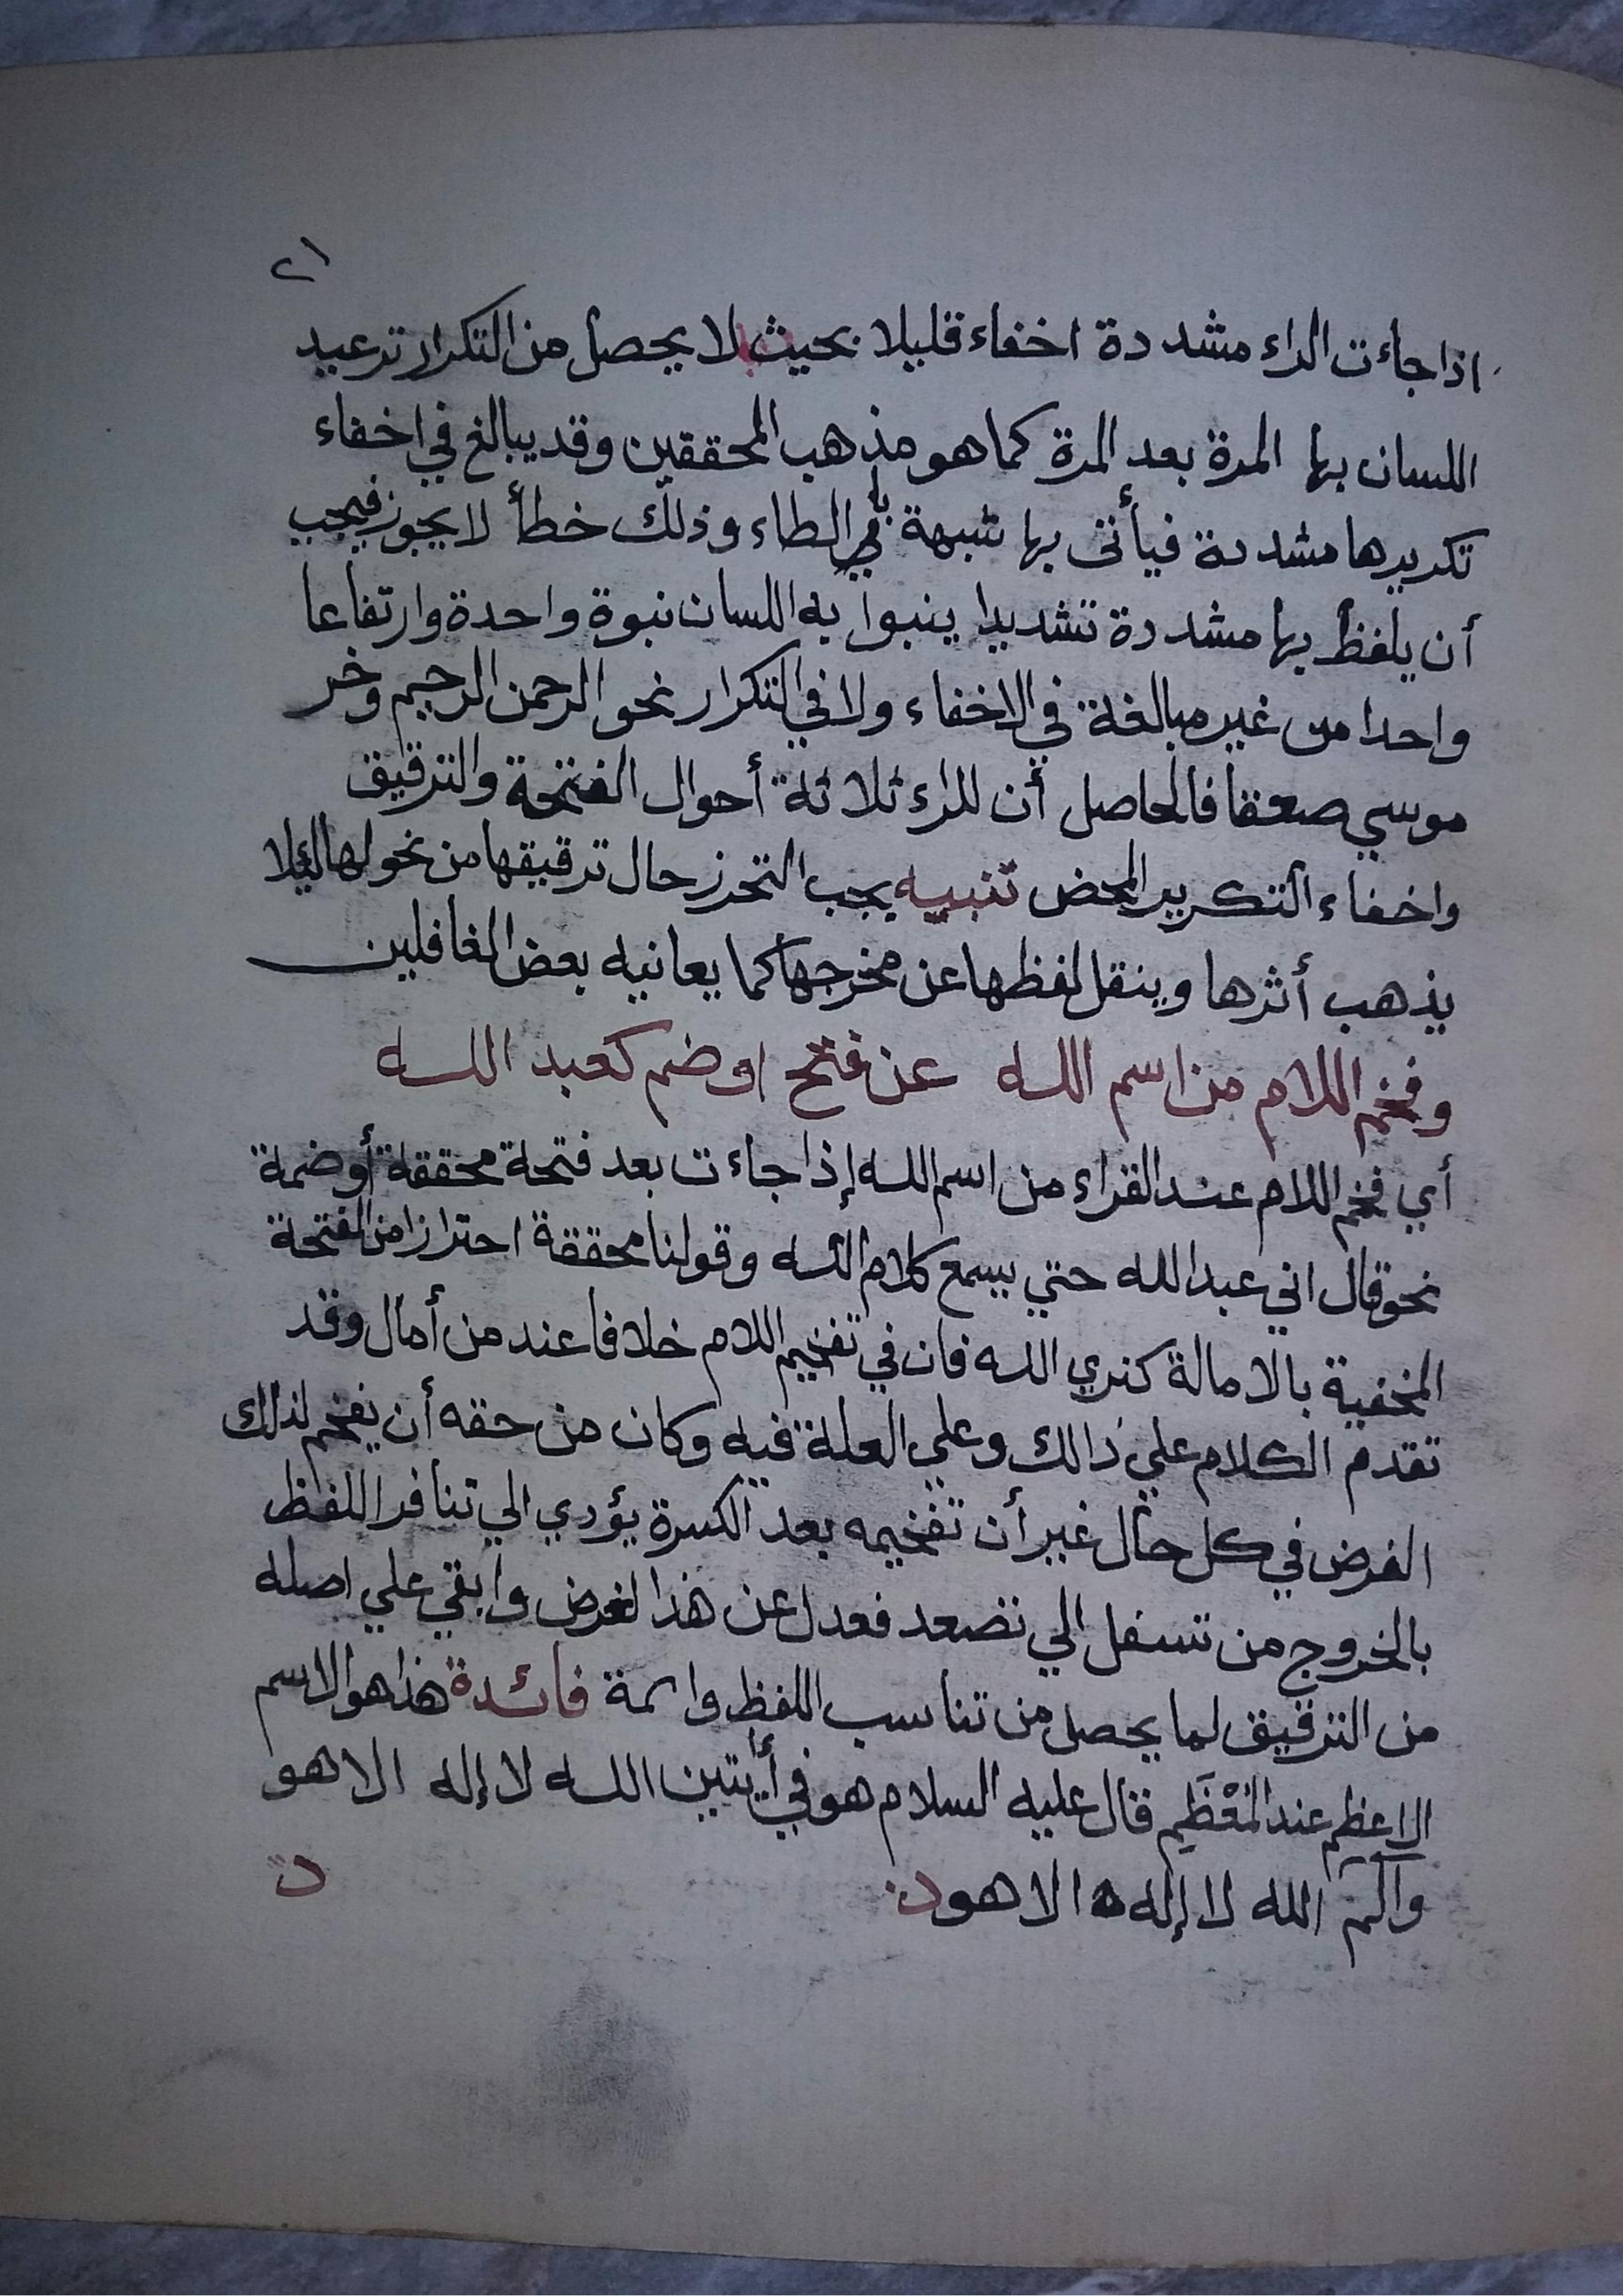 ٢١
اذا جاءت الراء مشددة اخفاء قليلا بحيث لا يحصل من التكرار ترعيد
اللسان بها المرة بعد المرة كما هو مذهب المحققين وقد يبالغ في اخفاء
تكريرها مشددة فيأتى بها شبيهة الطاء وذلك خطأ لا يجوز فيجب
أن يلفظ بها مشددة تشديدا ينبوا به اللسان نبوة واحدة وارتفاعا
واحدا من غير مبالغة في الاخفاء ولا في التكرار نحو الرحمن الرحيم وخر
موسي صعقا فالحاصل أن للراء ثلاثة أحوال الفتحة والترقيق
واخفاء التكرير المحض تنبيه يجب التحرز حال ترقيقها من نحولها لئلا
يذهب أثرها وينقل لفظها عن مخرجها كما يعانيه بعض الغافلين
وفخم اللام من اسم الله عن فتح او ضم كعبد الله
أي فخم اللام عند القراء من اسم الله إذا جاءت بعد فتحة محققة أوضمة
نحو قال اني عبد الله حتي يسمع كلام الله وقولنا محققة احترازا من الفتحة
المخفية بالامالة كنري الله فان في تفخيم اللام خلافا عند من أمال وقد
تقدم الكلام علي ذالك وعلي العلة فيه وكان من حقه أن يفخم لذلك
الغرض في كل حال غير أن تفخيمه بعد الكسرة يؤدي الي تنافر اللفظ
بالخروج من تسفل الي تصعد فعدل عن هذا الغرض وابقي علي اصله
من الترقيق لما يحصل من تناسب اللفظ فائدة هذا هو الاسم
الاعظم عند المُعْظَمِ فقال عليه السلام هو في أيتين الله لا إله الا هو
وآلٓمٓ الله لا إله الا هو